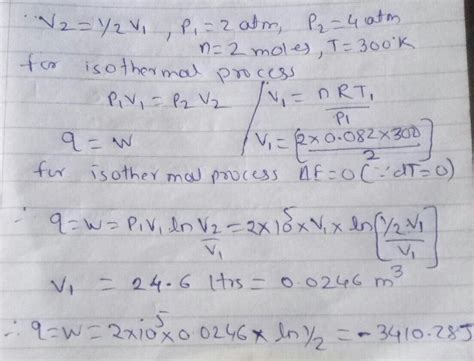 ∵ V2 = 1/2 V1 , P1 = 2 atm, P2 = 4 atm
n = 2 moles, T = 300°K
for isothermal process
P1V1 = P2V2 / V1 = nRT1/P1
q = w / V1 = [2×0.082×300/2]
for isothermal process ΔE=0 (∵dT=0)
∴ q=w= P1V1 ln V2/V1 = 2×10^5×V1× ln[1/2·V1/V1]
V1 = 24.6 ltrs = 0.0246 m^3
∴ q=w= 2×10^5×0.0246× ln 1/2 = -3410.28J